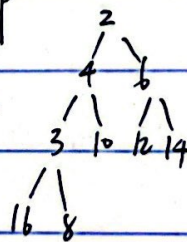 2
4 6
3 10 12 14
16 8